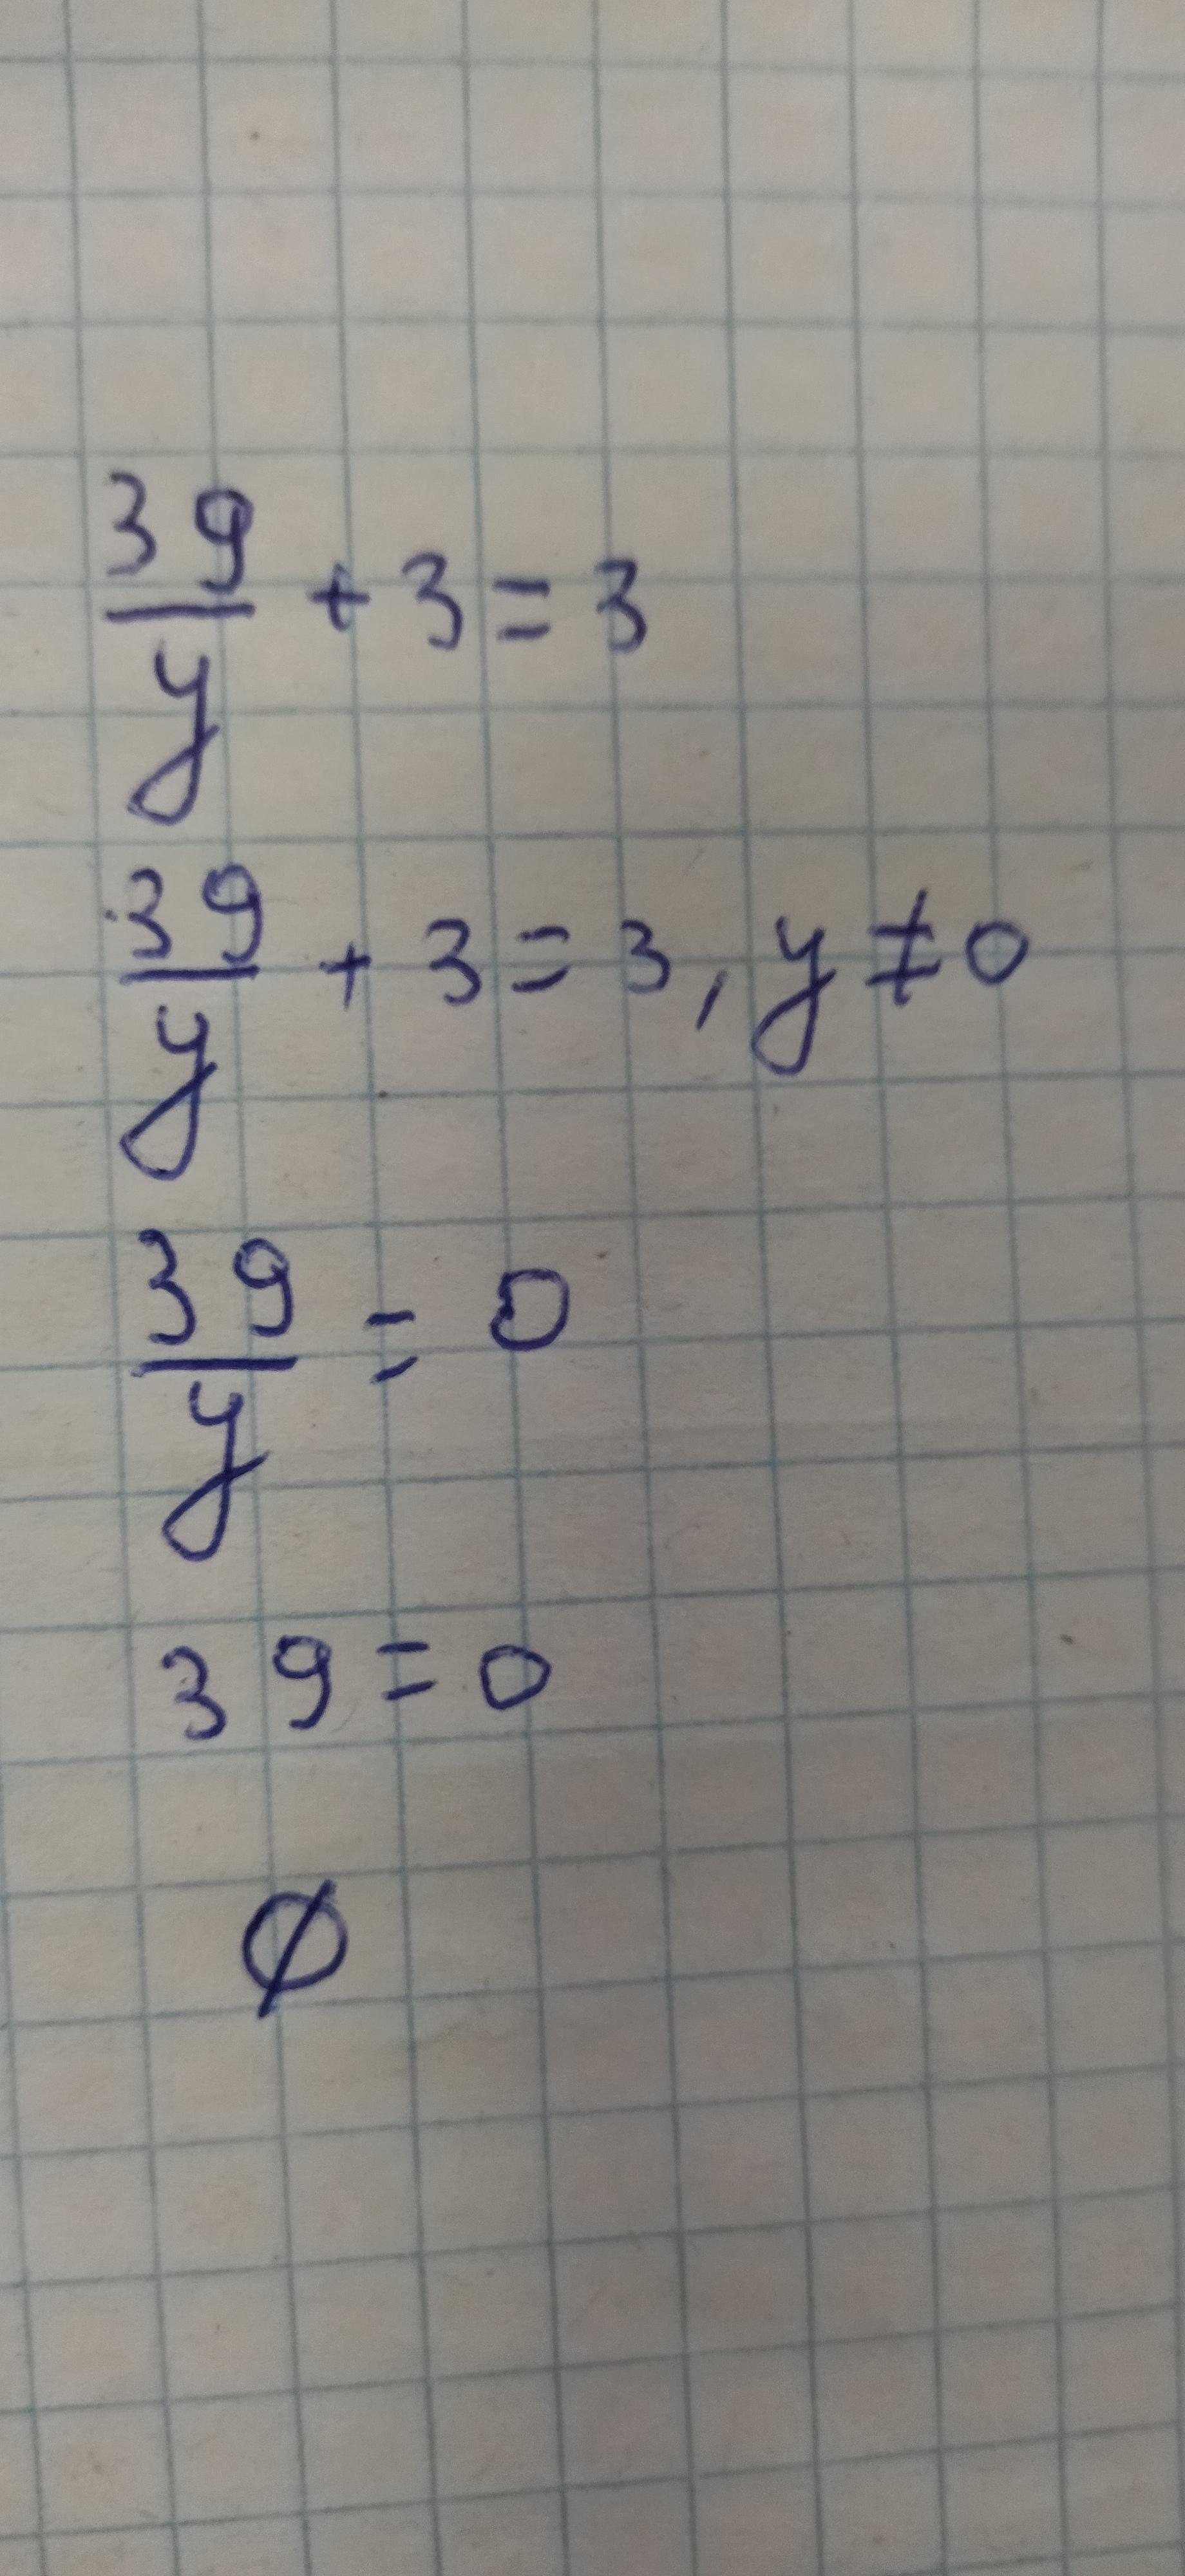 39/y + 3 = 3
39/y + 3 = 3, y ≠ 0
39/y = 0
39 = 0
∅